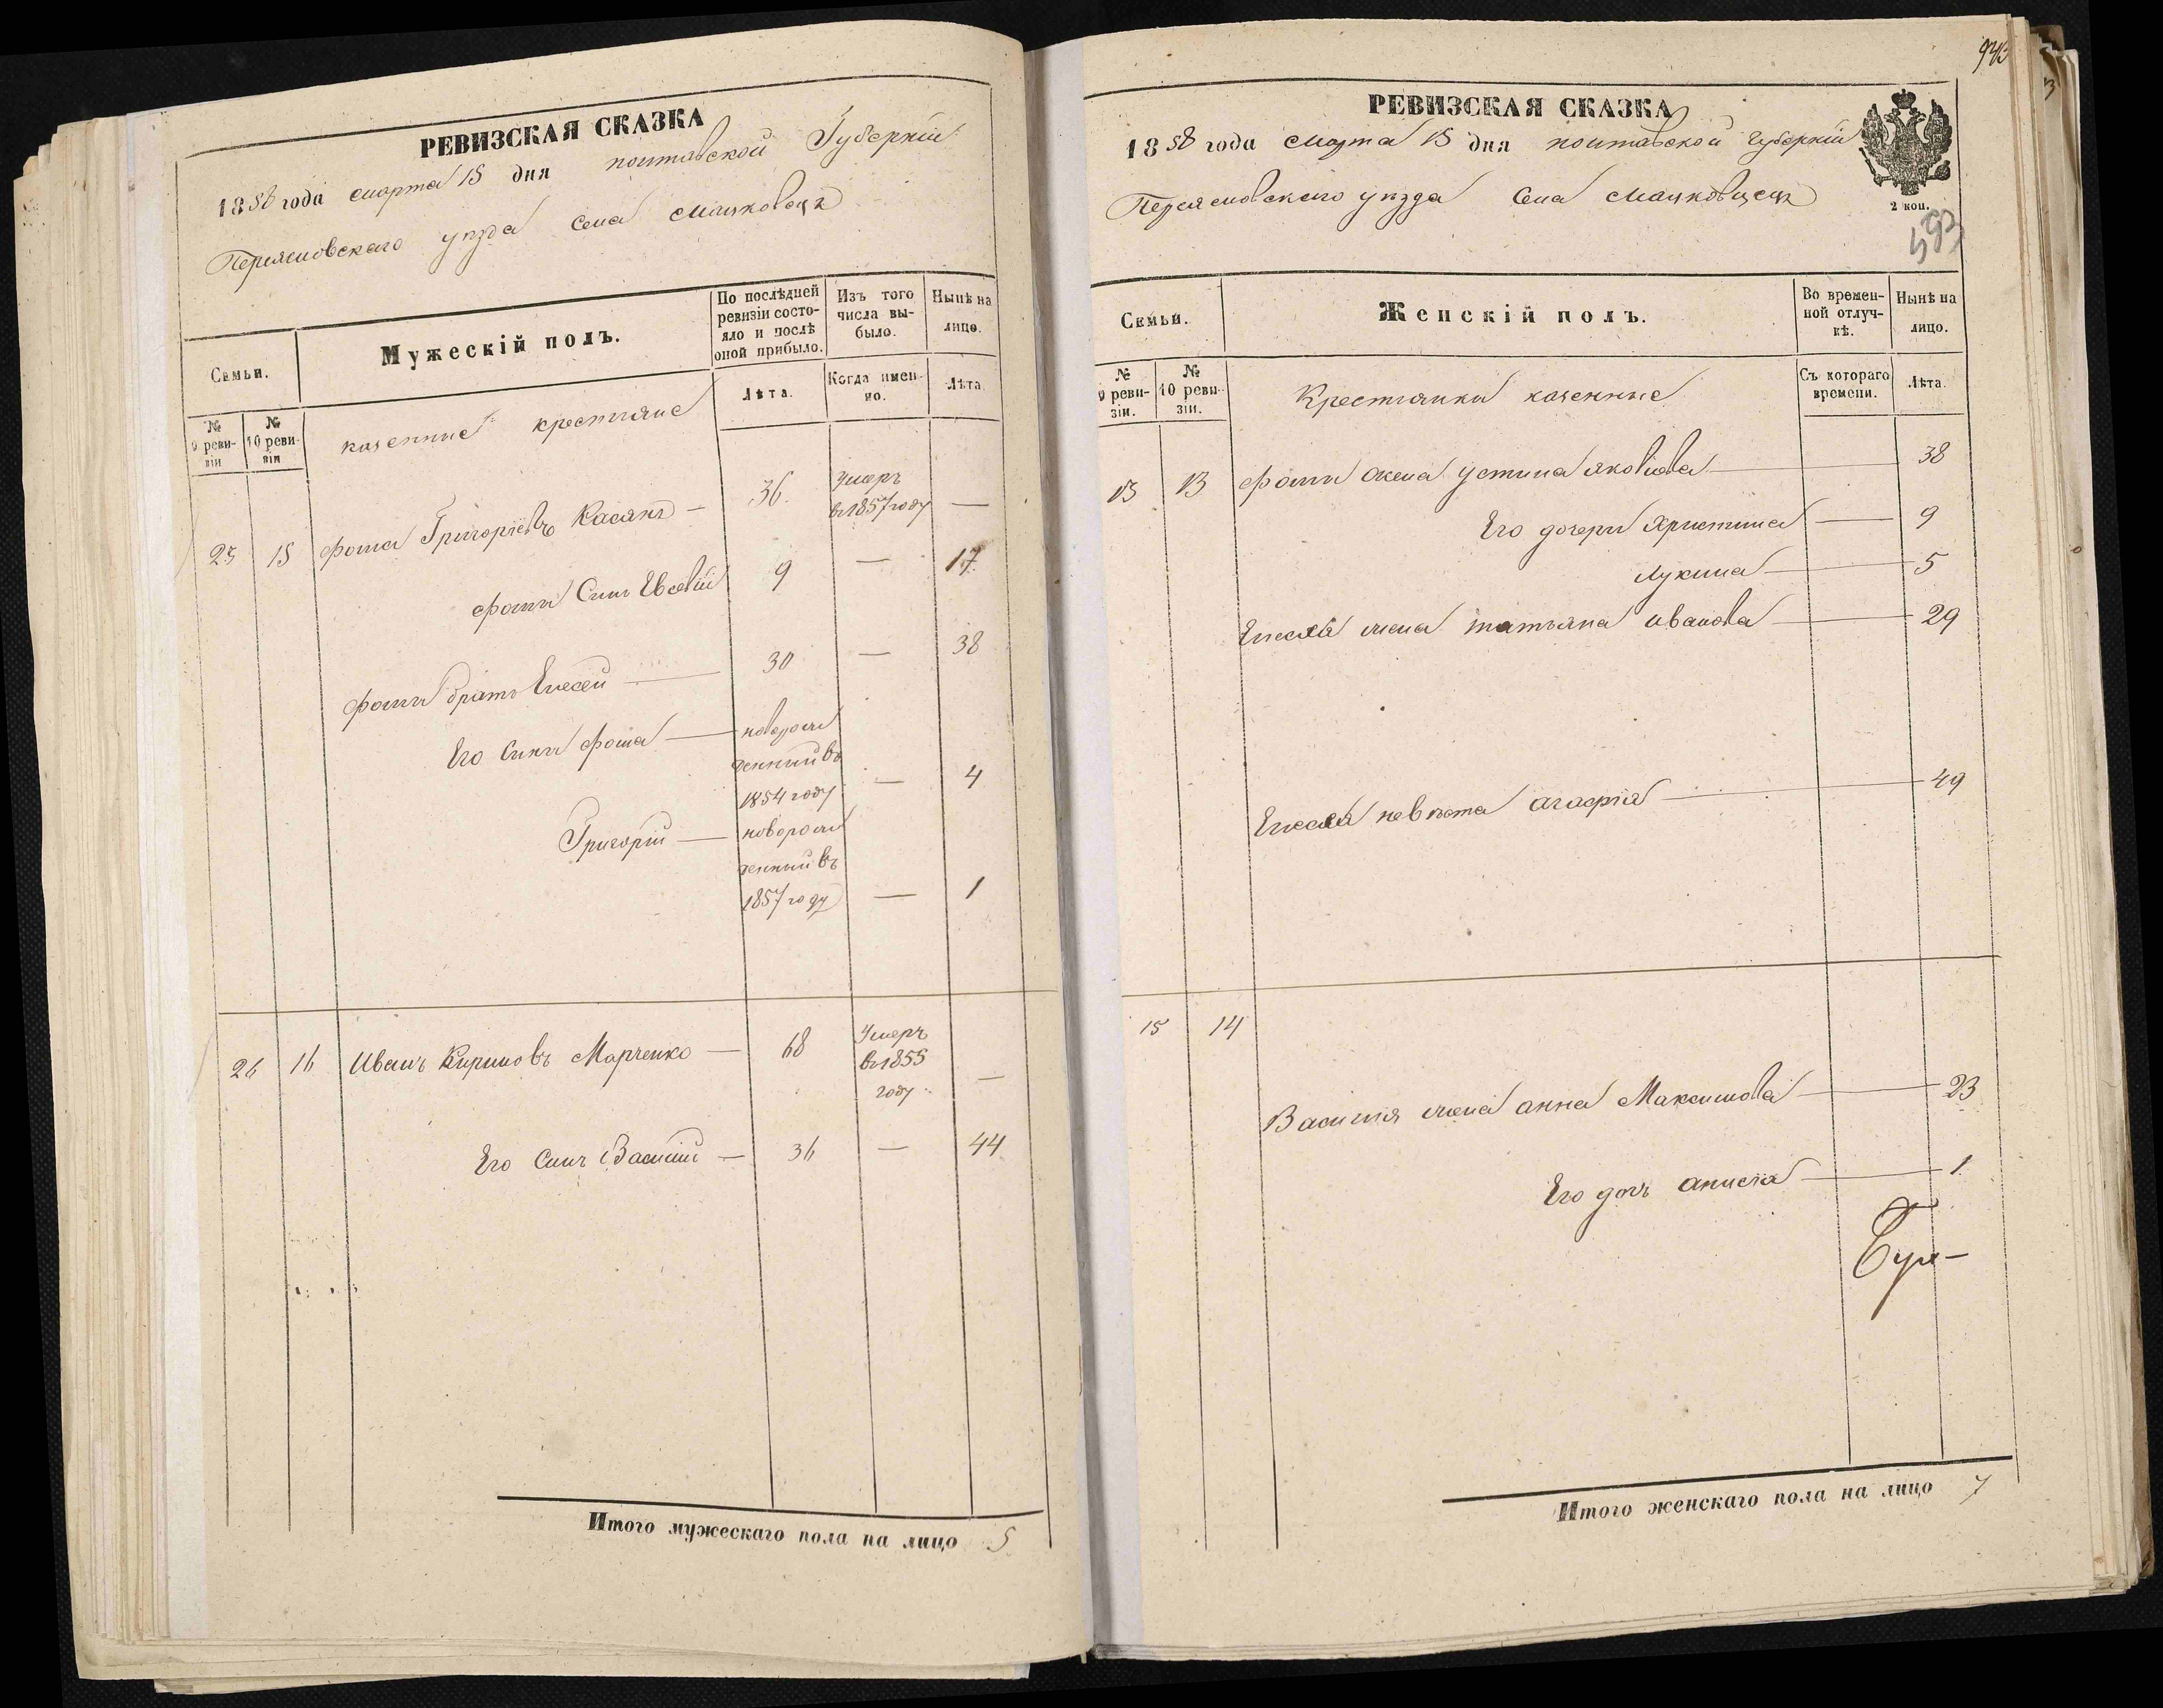 РЕВИЗСКАЯ СКАЗКА
1858 года марта 15 дня полтавской Губернiи
Переяславскаго уезда Села Мацковецъ
Семьи.
Мужескій полъ.
По послѣдней ревизіи состо-
яло и послѣ
оной прибыло.
Изъ того
числа вы-
было.
Нынѣ на
лицо.
№
9 реви-
зіи
№
10 реви-
зіи
казенные крестьяне
Лѣта.
Когда имен-
но.
Лѣта.
25 15 Фома Григорiевъ Касянъ — 36. Умеръ
в 1857 году —
Фомы Сынъ Евсевiй 9 — 17
Фомы братъ Елесей — 30 — 38
Его Сыны Фома — новорож
денный въ
1854 году — 4
Григорiй — новорож
денный въ
1857 году — 1
26 16 Иванъ Кириловъ Марченко — 68 Умеръ
в 1855
году —
Его Сынъ Василiй — 36 — 44
Итого мужескаго пола на лицо 5
РЕВИЗСКАЯ СКАЗКА
1858 года Марта 15 дня полтавской губернiи
Переясловскаго уезда Села Мацковецъ
2 коп.
Семьи.
Женскій полъ.
Во времен-
ной отлуч-
кѣ.
Нынѣ на
лицо.
№
9 реви-
зіи.
№
10 реви-
зіи.
Крестьянки казенные
Съ котораго
времени.
Лѣта.
Фомы жена устина яковлева — 38
Его дочери Христина — 9
Лукина — 5
Елесея жена татьяна иванова — 29
Елесея невѣста агафiя — 49
15 14
Василiя жена анна Максимова — 23
Его дочь анисiя — 1
Итого женскаго пола на лицо 7